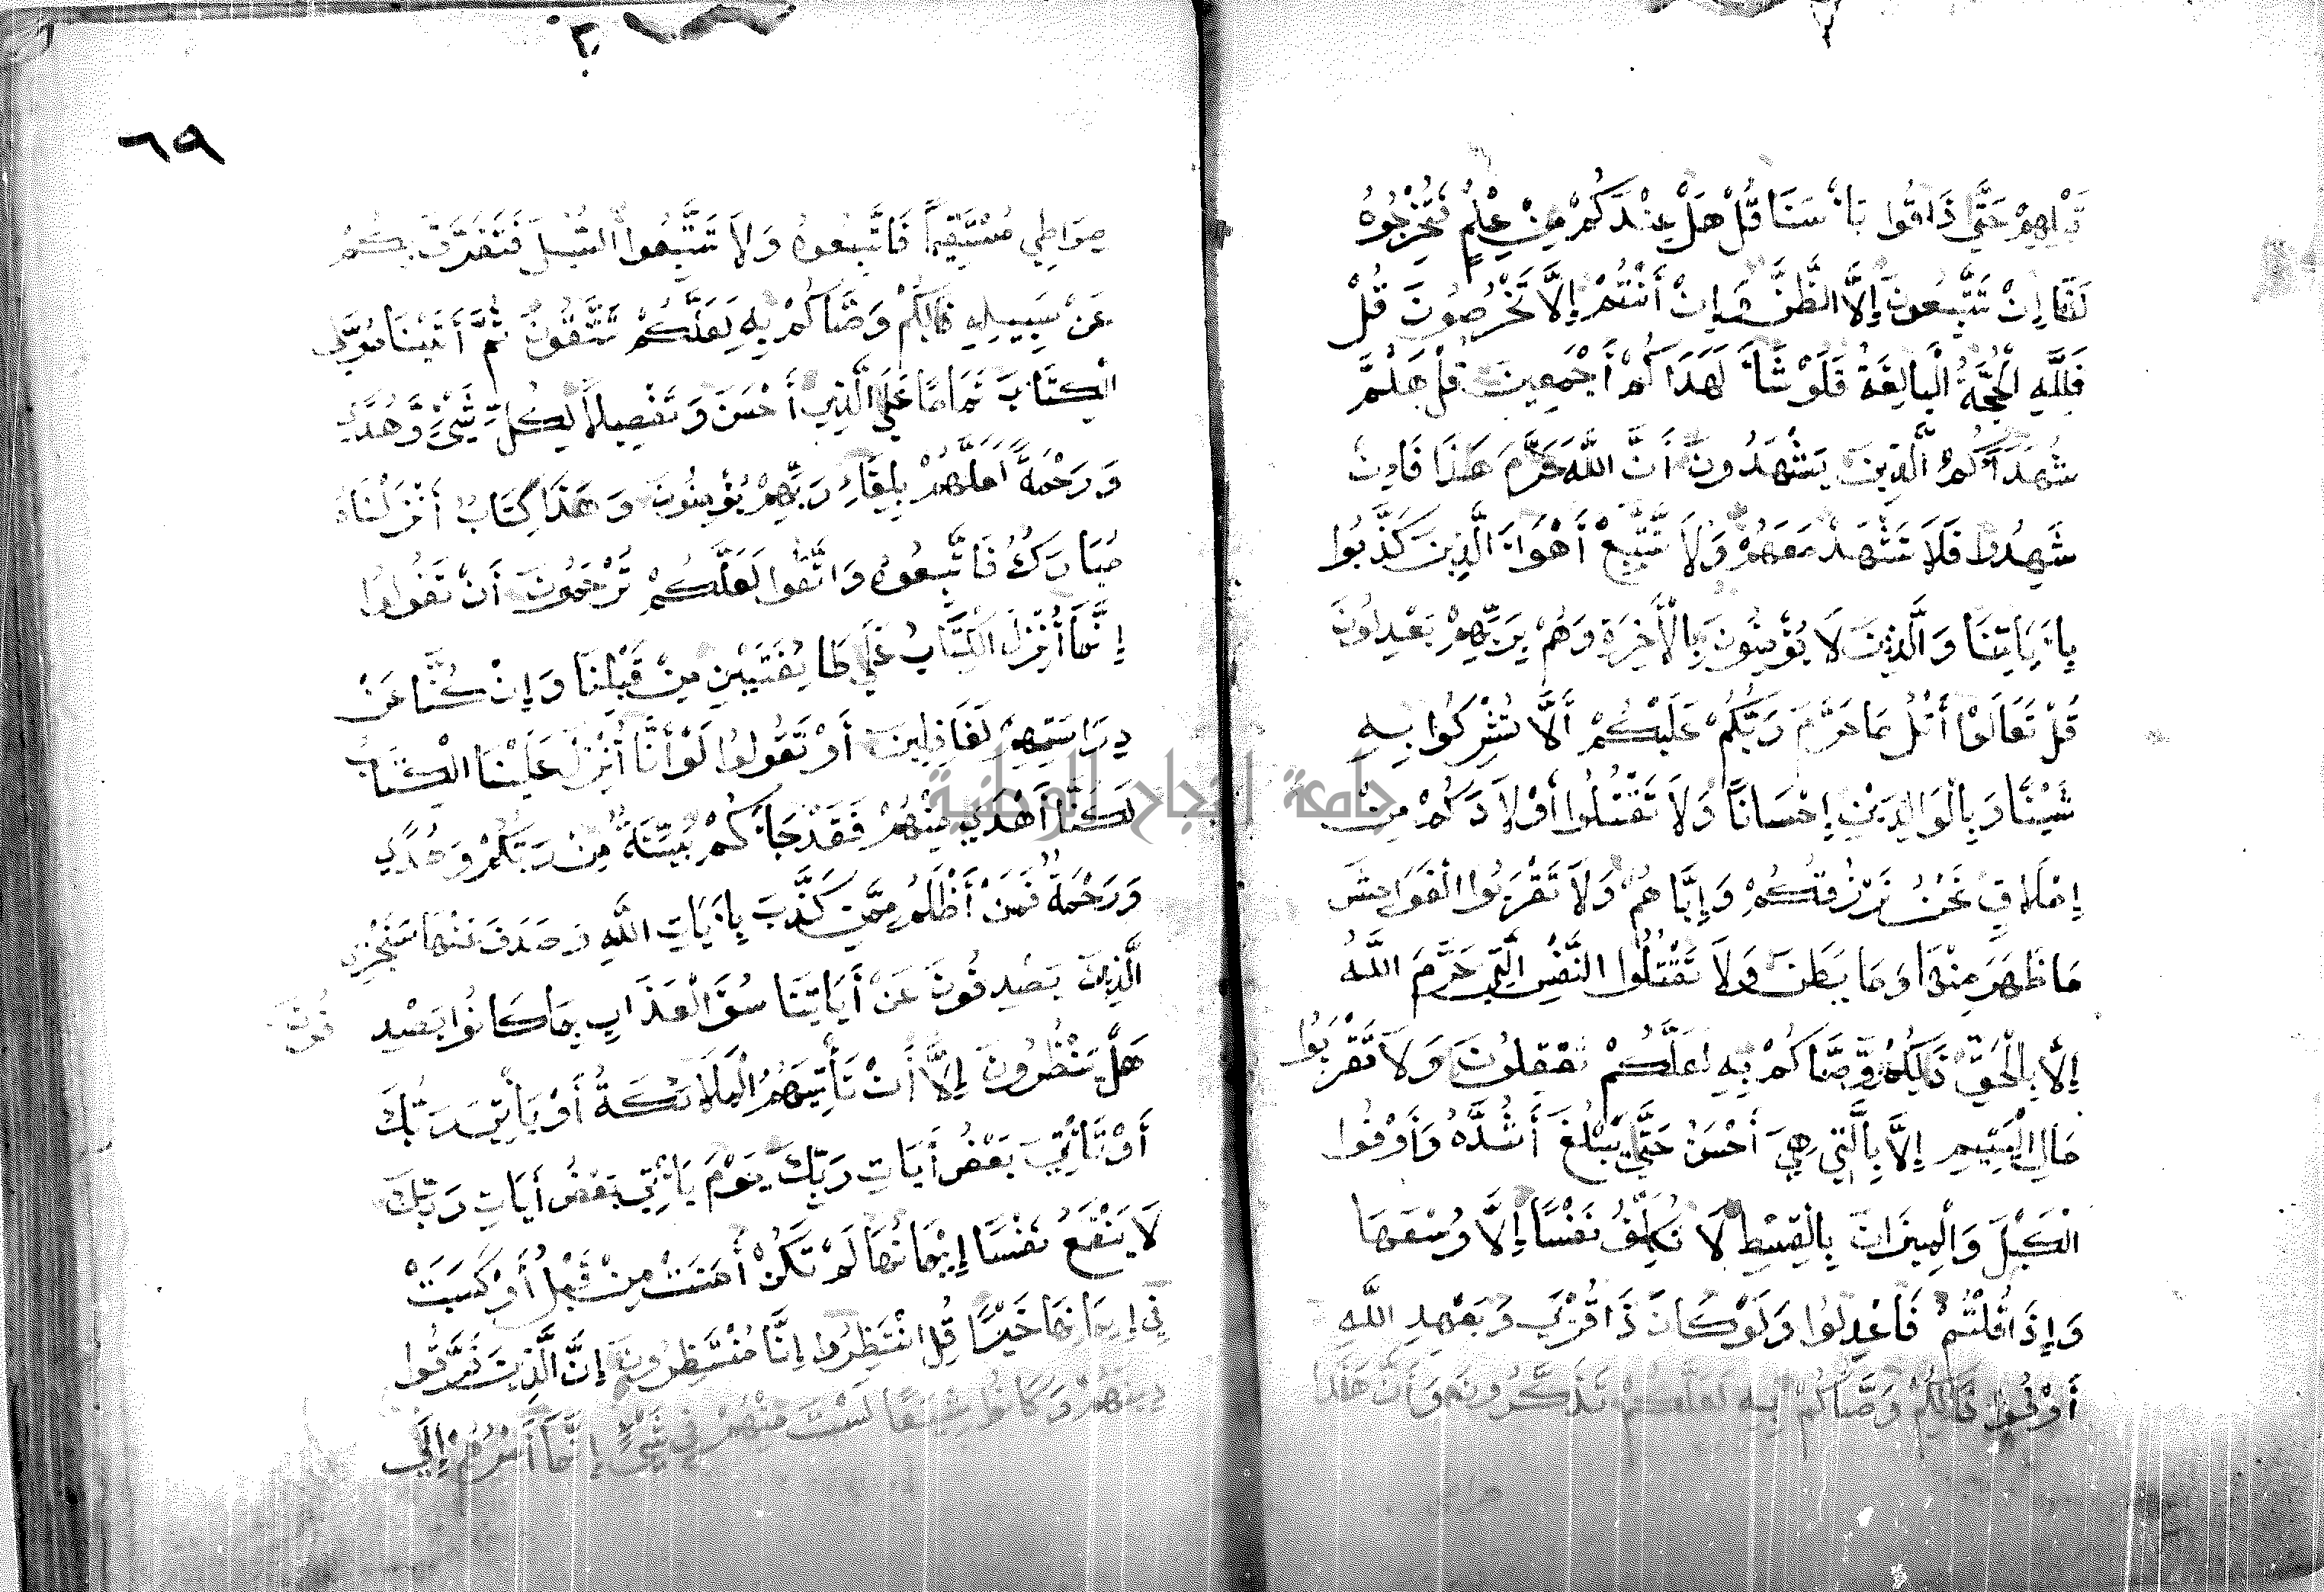 قَبْلِهِمْ حَتَّى ذَاقُوا بَأْسَنَا قُلْ هَلْ عِنْدَكُمْ مِنْ عِلْمٍ فَتُخْرِجُوهُ
لَنَا إِنْ تَتَّبِعُونَ إِلَّا الظَّنَّ وَإِنْ أَنْتُمْ إِلَّا تَخْرُصُونَ قُلْ
فَلِلَّهِ الْحُجَّةُ الْبَالِغَةُ فَلَوْ شَاءَ لَهَدَاكُمْ أَجْمَعِينَ قُلْ هَلُمَّ
شُهَدَاءَكُمُ الَّذِينَ يَشْهَدُونَ أَنَّ اللَّهَ حَرَّمَ هَذَا فَإِنْ
شَهِدُوا فَلَا تَشْهَدْ مَعَهُمْ وَلَا تَتَّبِعْ أَهْوَاءَ الَّذِينَ كَذَّبُوا
بِآيَاتِنَا وَالَّذِينَ لَا يُؤْمِنُونَ بِالْأَخِرَةِ وَهُمْ بِرَبِّهِمْ يَعْدِلُونَ
قُلْ تَعَالَوْا أَتْلُ مَا حَرَّمَ رَبُّكُمْ عَلَيْكُمْ أَلَّا تُشْرِكُوا بِهِ
شَيْئًا وَبِالْوَالِدَيْنِ إِحْسَانًا وَلَا تَقْتُلُوا أَوْلَادَكُمْ مِنْ
إِمْلَاقٍ نَحْنُ نَرْزُقُكُمْ وَإِيَّاهُمْ وَلَا تَقْرَبُوا الْفَوَاحِشَ
مَا ظَهَرَ مِنْهَا وَمَا بَطَنَ وَلَا تَقْتُلُوا النَّفْسَ الَّتِي حَرَّمَ اللَّهُ
إِلَّا بِالْحَقِّ ذَلِكُمْ وَصَّاكُمْ بِهِ لَعَلَّكُمْ تَعْقِلُونَ وَلَا تَقْرَبُوا
مَالَ الْيَتِيمِ إِلَّا بِالَّتِي هِيَ أَحْسَنُ حَتَّى يَبْلُغَ أَشُدَّهُ وَأَوْفُوا
الْكَيْلَ وَالْمِيزَانَ بِالْقِسْطِ لَا نُكَلِّفُ نَفْسًا إِلَّا وُسْعَهَا
وَإِذَا قُلْتُمْ فَاعْدِلُوا وَلَوْ كَانَ ذَا قُرْبَى وَبِعَهْدِ اللَّهِ
أَوْفُوا ذَلِكُمْ وَصَّاكُمْ بِهِ لَعَلَّكُمْ تَذَكَّرُونَ وَأَنَّ هَذَا
٦٩
صِرَاطِي مُسْتَقِيمًا فَاتَّبِعُوهُ وَلَا تَتَّبِعُوا السُّبُلَ فَتَفَرَّقَ بِكُمْ
عَنْ سَبِيلِهِ ذَلِكُمْ وَصَّاكُمْ بِهِ لَعَلَّكُمْ تَتَّقُونَ ثُمَّ أَتَيْنَا مُوسَى
الْكِتَابَ تَمَامًا عَلَى الَّذِي أَحْسَنَ وَتَفْصِيلًا لِكُلِّ شَيْءٍ وَهُدًى
وَرَحْمَةً لَعَلَّهُمْ بِلِقَاءِ رَبِّهِمْ يُؤْمِنُونَ وَهَذَا كِتَابٌ أَنْزَلْنَاهُ
مُبَارَكٌ فَاتَّبِعُوهُ وَاتَّقُوا لَعَلَّكُمْ تُرْحَمُونَ أَنْ تَقُولُوا
إِنَّمَا أُنْزِلَ الْكِتَابُ عَلَى طَائِفَتَيْنِ مِنْ قَبْلِنَا وَإِنْ كُنَّا عَنْ
دِرَاسَتِهِمْ لَغَافِلِينَ أَوْ تَقُولُوا لَوْ أَنَّا أُنْزِلَ عَلَيْنَا الْكِتَابُ
لَكُنَّا أَهْدَى مِنْهُمْ فَقَدْ جَاءَكُمْ بَيِّنَةٌ مِنْ رَبِّكُمْ وَهُدًى
وَرَحْمَةٌ فَمَنْ أَظْلَمُ مِمَّنْ كَذَّبَ بِآيَاتِ اللَّهِ وَصَدَفَ عَنْهَا سَنَجْزِي
الَّذِينَ يَصْدِفُونَ عَنْ أَيَاتِنَا سُوءَ الْعَذَابِ بِمَا كَانُوا يَصْدِ
فُونَ
هَلْ يَنْظُرُونَ إِلَّا أَنْ تَأْتِيَهُمُ الْمَلَائِكَةُ أَوْ يَأْتِيَ رَبُّكَ
أَوْ يَأْتِيَ بَعْضُ أَيَاتِ رَبِّكَ يَوْمَ يَأْتِي بَعْضُ أَيَاتِ رَبِّكَ
لَا يَنْفَعُ نَفْسًا إِيمَانُهَا لَمْ تَكُنْ أَمَنَتْ مِنْ قَبْلُ أَوْ كَسَبَتْ
فِي إِيمَانِهَا خَيْرًا قُلِ انْتَظِرُوا إِنَّا مُنْتَظِرُونَ إِنَّ الَّذِينَ فَرَّقُوا
دِينَهُمْ وَكَانُوا شِيَعًا لَسْتَ مِنْهُمْ فِي شَيْءٍ إِنَّمَا أَمْرُهُمْ إِلَى
جامعة النجاح الوطنية